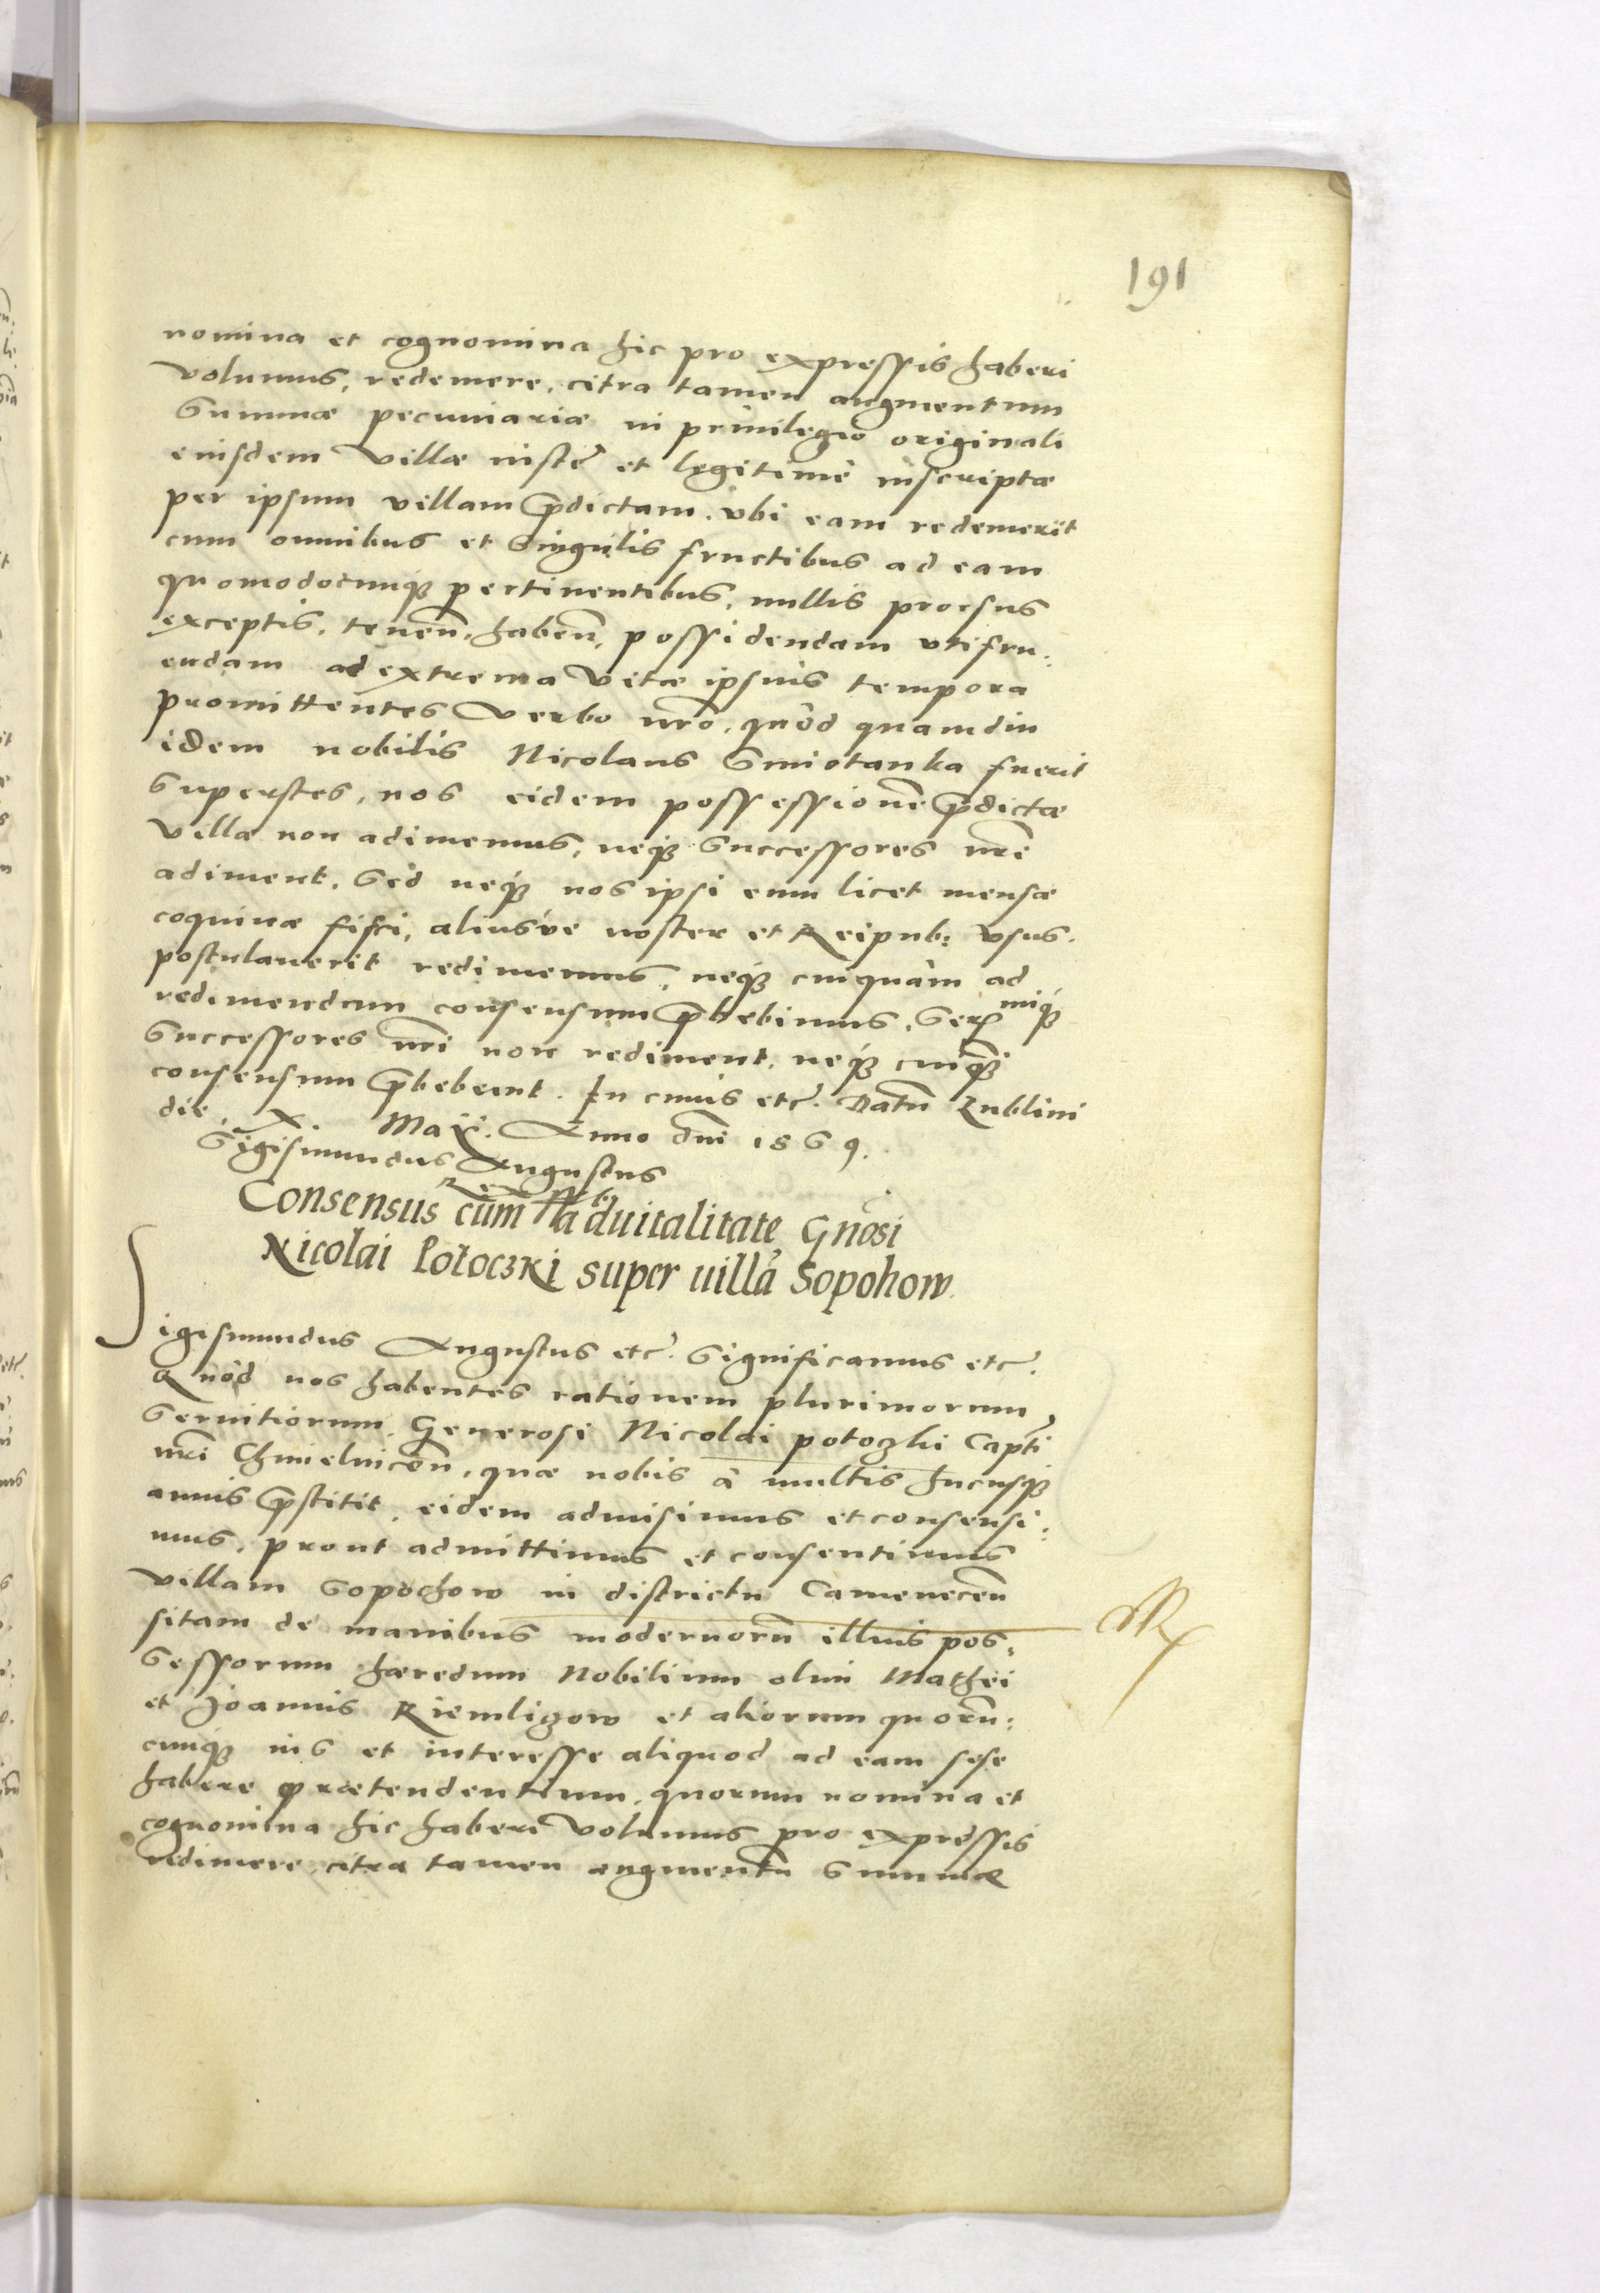 191
nomina et cognomina hic pro expressis haberi
volumus, redemere, citra tamen augmentum
summæ pecuniariæ in privilegio originali
eiusdem villæ iuste et legitime inscriptæ
per ipsum villam p̄dictam, vbi eam redemerit
cum omnibus et singulis fructibus ad eam
quomodocunq; pertinentibus, nullis prorsus
exceptis, teneñ, habeñ, possidendam vtifru:
endam ad extrema vitæ ipsius tempora
promittentes verbo nrō, quòd quamdiu
idem nobilis Nicolaus Smiotanka fuerit
superstes, nos eidem possessionē p̄dictæ
villæ non adimemus, neq; successores nrī
adiment. Sed neq; nos ipsi eum licet mensæ
coquinæ fisci, aliusve noster et Reipub: vsus
postulaverit redimemus, neq; cuiquam ad
redimendum consensum p̄bebimus, Sermiq;
successores nrī non rediment, neq; cuiq̄
consensum p̄bebunt. In cuius etc. Datū Lublini
die X Maij. Anno dni 1569.
Sigismundus Augustus
Rex
Consensus cum aduitalitate Gnosi
Nicolai Potoczki super uillā Sopohow.
Sigismundus Augustus etc. Significamus etc.
Quòd nos habentes rationem plurimorum
seruitiorum, Generosi Nicolai potoczki Captī
nrī Chmielniceñ, quæ nobis à multis hucusq;
annis p̄stitit, eidem admisimus et consensi:
mus, prout admittimus et consentimus
villam Sopochow in districtu Cameneceñ
sitam de manibus modernorū illius pos:
sessorum hæredum Nobilium olim Mathei
et Joannis Riemligow et aliorum quorū:
cunq; ius et interesse aliquod ad eam sese
habere prætendentium, quorum nomina et
cognomina hic haberi volumus pro expressis
redimere, citra tamen augmentū summæ